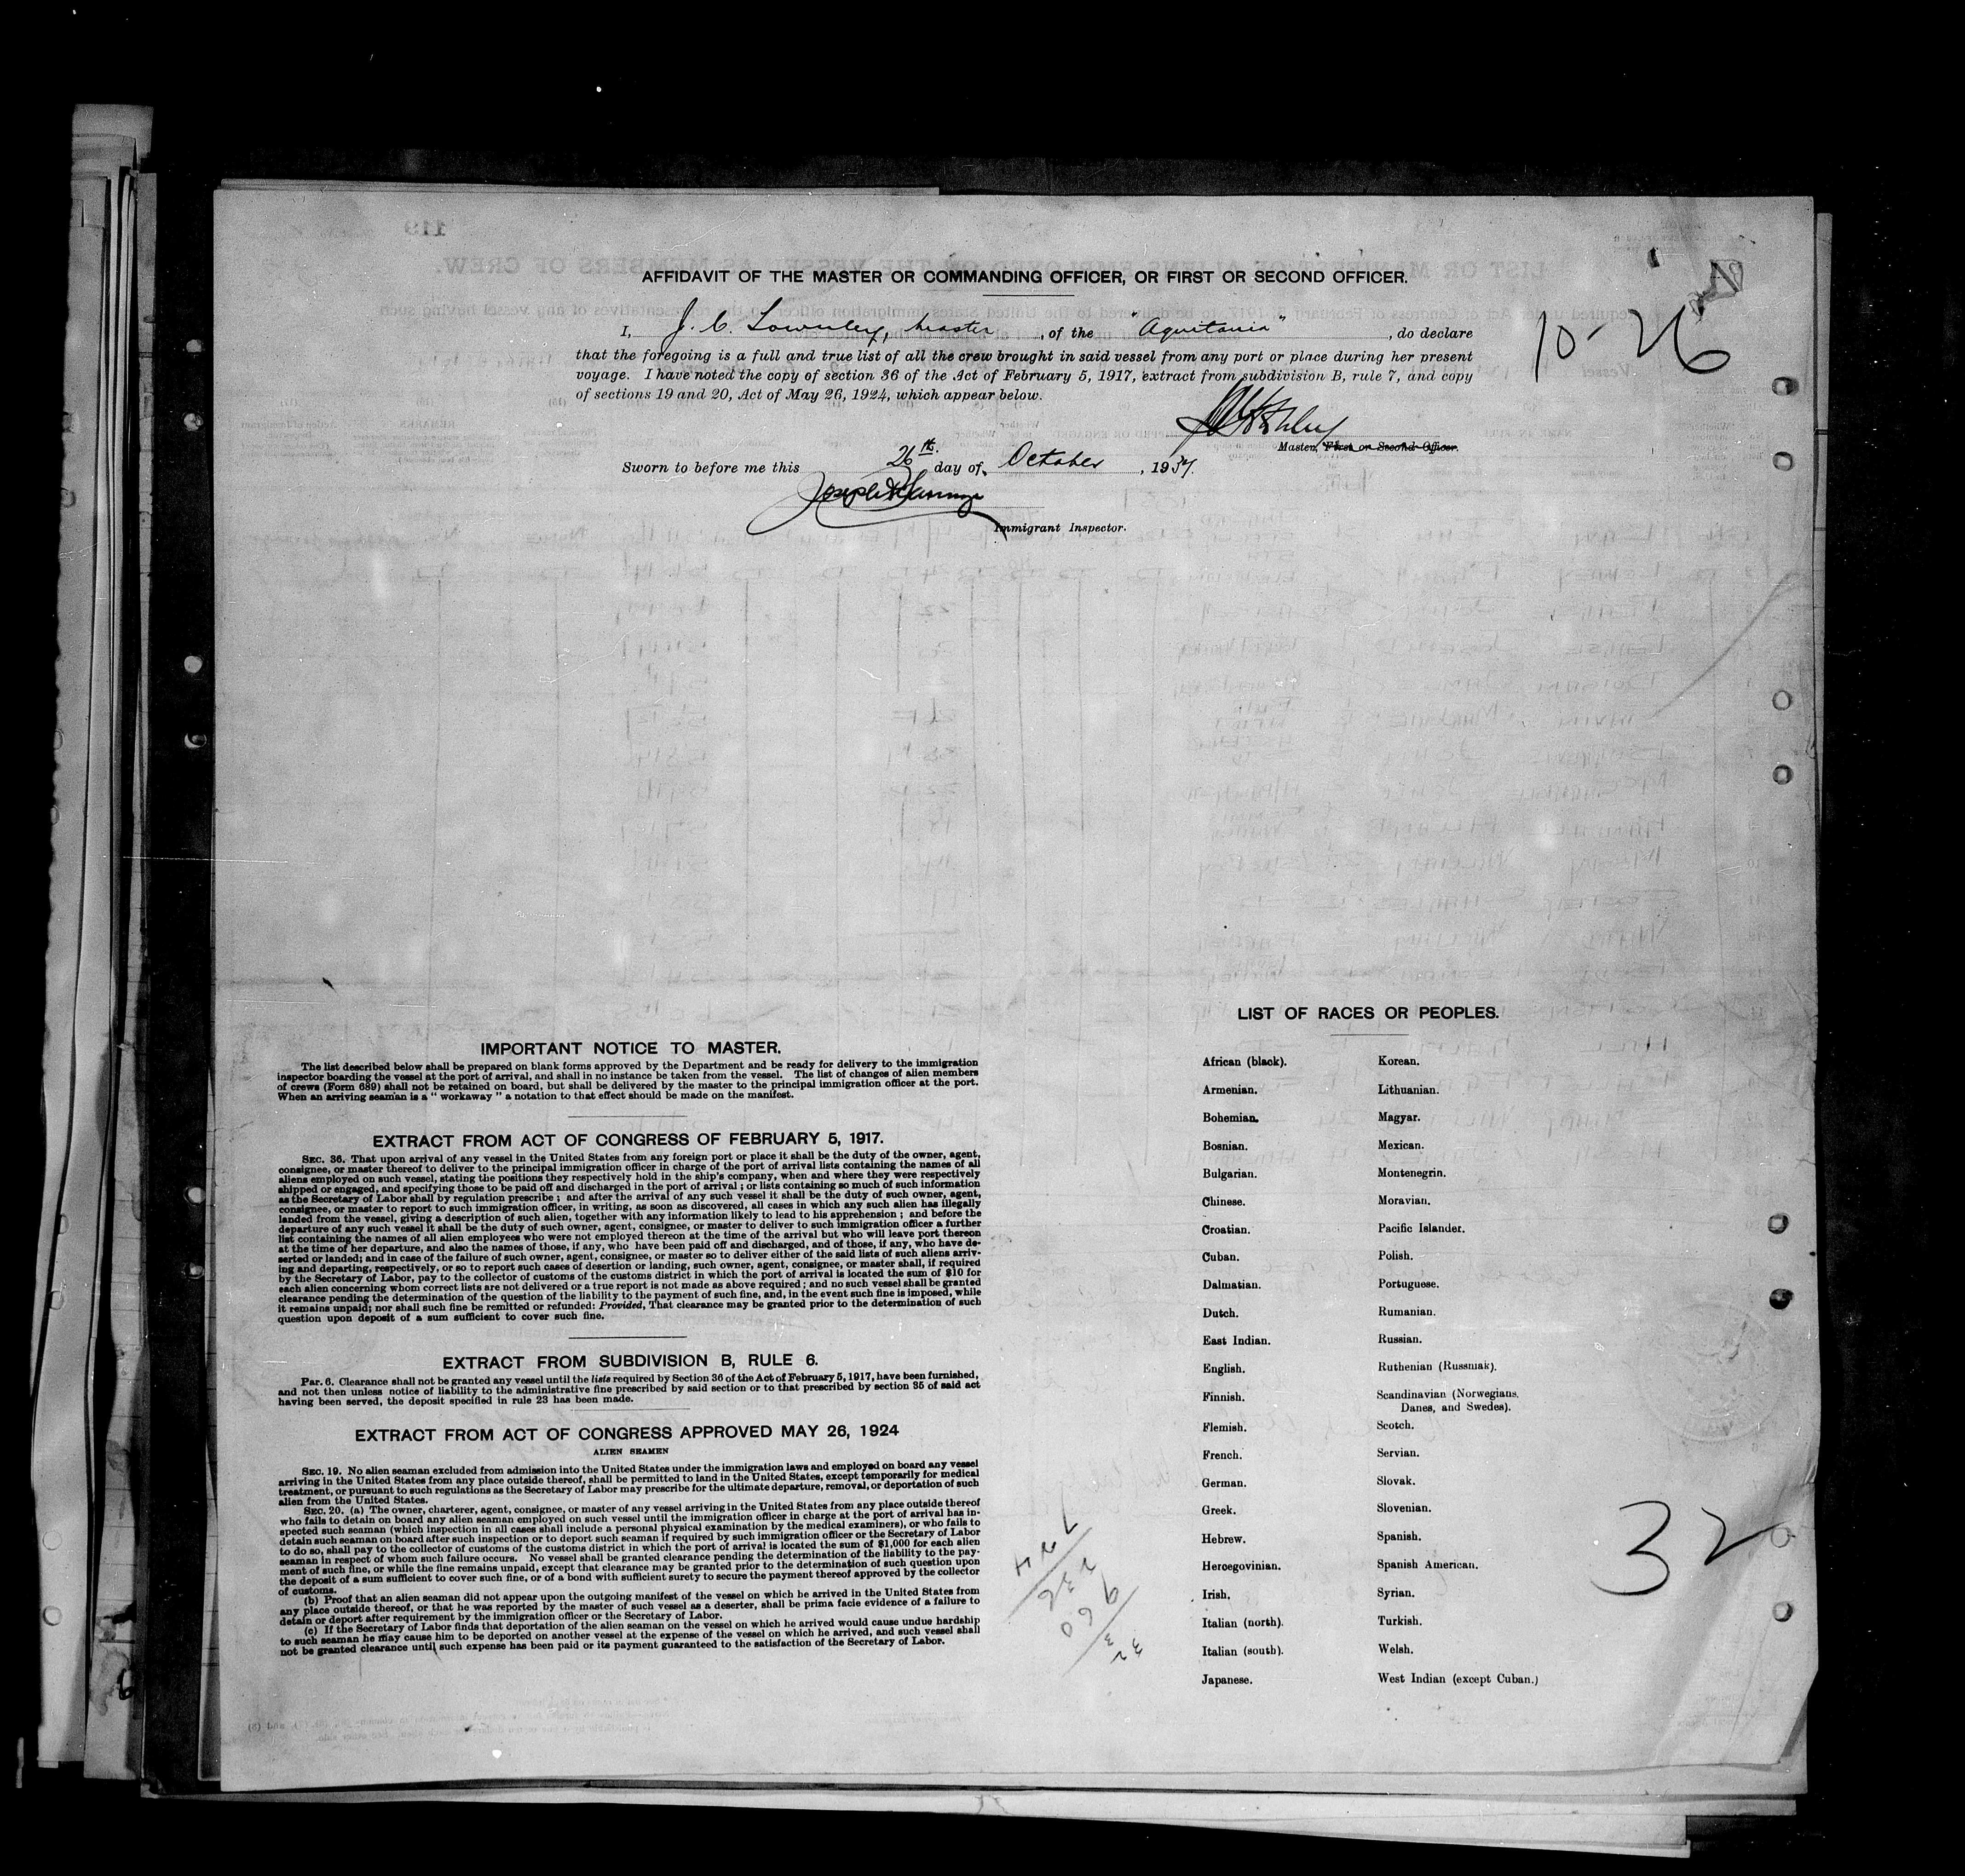 AFFIDAVIT OF THE MASTER OR COMMANDING OFFICER, OR FIRST OR SECOND OFFICER.
I, J. C. Townley, Master, of the "Aquitania", do declare
that the foregoing is a full and true list of all the crew brought in said vessel from any port or place during her present
voyage. I have noted the copy of section 36 of the Act of February 5, 1917, extract from subdivision B, rule 7, and copy
of sections 19 and 20, Act of May 26, 1924, which appear below.
10-26
Master, First or Second Officer.
Sworn to before me this 26th day of October, 1937.
Immigrant Inspector.
IMPORTANT NOTICE TO MASTER.
The list described below shall be prepared on blank forms approved by the Department and be ready for delivery to the immigration
inspector boarding the vessel at the port of arrival, and shall in no instance be taken from the vessel. The list of changes of alien members
of crews (Form 689) shall not be retained on board, but shall be delivered by the master to the principal immigration officer at the port.
When an arriving seaman is a " workaway " a notation to that effect should be made on the manifest.
EXTRACT FROM ACT OF CONGRESS OF FEBRUARY 5, 1917.
SEC. 36. That upon arrival of any vessel in the United States from any foreign port or place it shall be the duty of the owner, agent,
consignee, or master thereof to deliver to the principal immigration officer in charge of the port of arrival lists containing the names of all
aliens employed on such vessel, stating the positions they respectively hold in the ship's company, when and where they were respectively
shipped or engaged, and specifying those to be paid off and discharged in the port of arrival ; or lists containing so much of such information
as the Secretary of Labor shall by regulation prescribe ; and after the arrival of any such vessel it shall be the duty of such owner, agent,
consignee, or master to report to such immigration officer, in writing, as soon as discovered, all cases in which any such alien has illegally
landed from the vessel, giving a description of such alien, together with any information likely to lead to his apprehension ; and before the
departure of any such vessel it shall be the duty of such owner, agent, consignee, or master to deliver to such immigration officer a further
list containing the names of all alien employees who were not employed thereon at the time of the arrival but who will leave port thereon
at the time of her departure, and also the names of those, if any, who have been paid off and discharged, and of those, if any, who have de-
serted or landed; and in case of the failure of such owner, agent, consignee, or master so to deliver either of the said lists of such aliens arriv-
ing and departing, respectively, or so to report such cases of desertion or landing, such owner, agent, consignee, or master shall, if required
by the Secretary of Labor, pay to the collector of customs of the customs district in which the port of arrival is located the sum of $10 for
each alien concerning whom correct lists are not delivered or a true report is not made as above required ; and no such vessel shall be granted
clearance pending the determination of the question of the liability to the payment of such fine, and, in the event such fine is imposed, while
it remains unpaid; nor shall such fine be remitted or refunded: Provided, That clearance may be granted prior to the determination of such
question upon deposit of a sum sufficient to cover such fine.
EXTRACT FROM SUBDIVISION B, RULE 6.
Par. 6. Clearance shall not be granted any vessel until the lists required by Section 36 of the Act of February 5, 1917, have been furnished,
and not then unless notice of liability to the administrative fine prescribed by said section or to that prescribed by section 35 of said act
having been served, the deposit specified in rule 23 has been made.
EXTRACT FROM ACT OF CONGRESS APPROVED MAY 26, 1924
ALIEN SEAMEN
SEC. 19. No alien seaman excluded from admission into the United States under the immigration laws and employed on board any vessel
arriving in the United States from any place outside thereof, shall be permitted to land in the United States, except temporarily for medical
treatment, or pursuant to such regulations as the Secretary of Labor may prescribe for the ultimate departure, removal, or deportation of such
alien from the United States.
SEC. 20. (a) The owner, charterer, agent, consignee, or master of any vessel arriving in the United States from any place outside thereof
who fails to detain on board any alien seaman employed on such vessel until the immigration officer in charge at the port of arrival has in-
spected such seaman (which inspection in all cases shall include a personal physical examination by the medical examiners), or who fails to
detain such seaman on board after such inspection or to deport such seaman if required by such immigration officer or the Secretary of Labor
to do so, shall pay to the collector of customs of the customs district in which the port of arrival is located the sum of $1,000 for each alien
seaman in respect of whom such failure occurs. No vessel shall be granted clearance pending the determination of the liability to the pay-
ment of such fine, or while the fine remains unpaid, except that clearance may be granted prior to the determination of such question upon
the deposit of a sum sufficient to cover such fine, or of a bond with sufficient surety to secure the payment thereof approved by the collector
of customs.
(b) Proof that an alien seaman did not appear upon the outgoing manifest of the vessel on which he arrived in the United States from
any place outside thereof, or that he was reported by the master of such vessel as a deserter, shall be prima facie evidence of a failure to
detain or deport after requirement by the immigration officer or the Secretary of Labor.
(c) If the Secretary of Labor finds that deportation of the alien seaman on the vessel on which he arrived would cause undue hardship
to such seaman he may cause him to be deported on another vessel at the expense of the vessel on which he arrived, and such vessel shall
not be granted clearance until such expense has been paid or its payment guaranteed to the satisfaction of the Secretary of Labor.
LIST OF RACES OR PEOPLES.
African (black).
Armenian.
Bohemian.
Bosnian.
Bulgarian.
Chinese.
Croatian.
Cuban.
Dalmatian.
Dutch.
East Indian.
English.
Finnish.
Flemish.
French.
German.
Greek.
Hebrew.
Hercegovinian.
Irish.
Italian (north).
Italian (south).
Japanese.
Korean.
Lithuanian.
Magyar.
Mexican.
Montenegrin.
Moravian.
Pacific Islander.
Polish.
Portuguese.
Rumanian.
Russian.
Ruthenian (Russniak).
Scandinavian (Norwegians,
Danes, and Swedes).
Scotch.
Servian.
Slovak.
Slovenian.
Spanish.
Spanish American.
Syrian.
Turkish.
Welsh.
West Indian (except Cuban.)
32